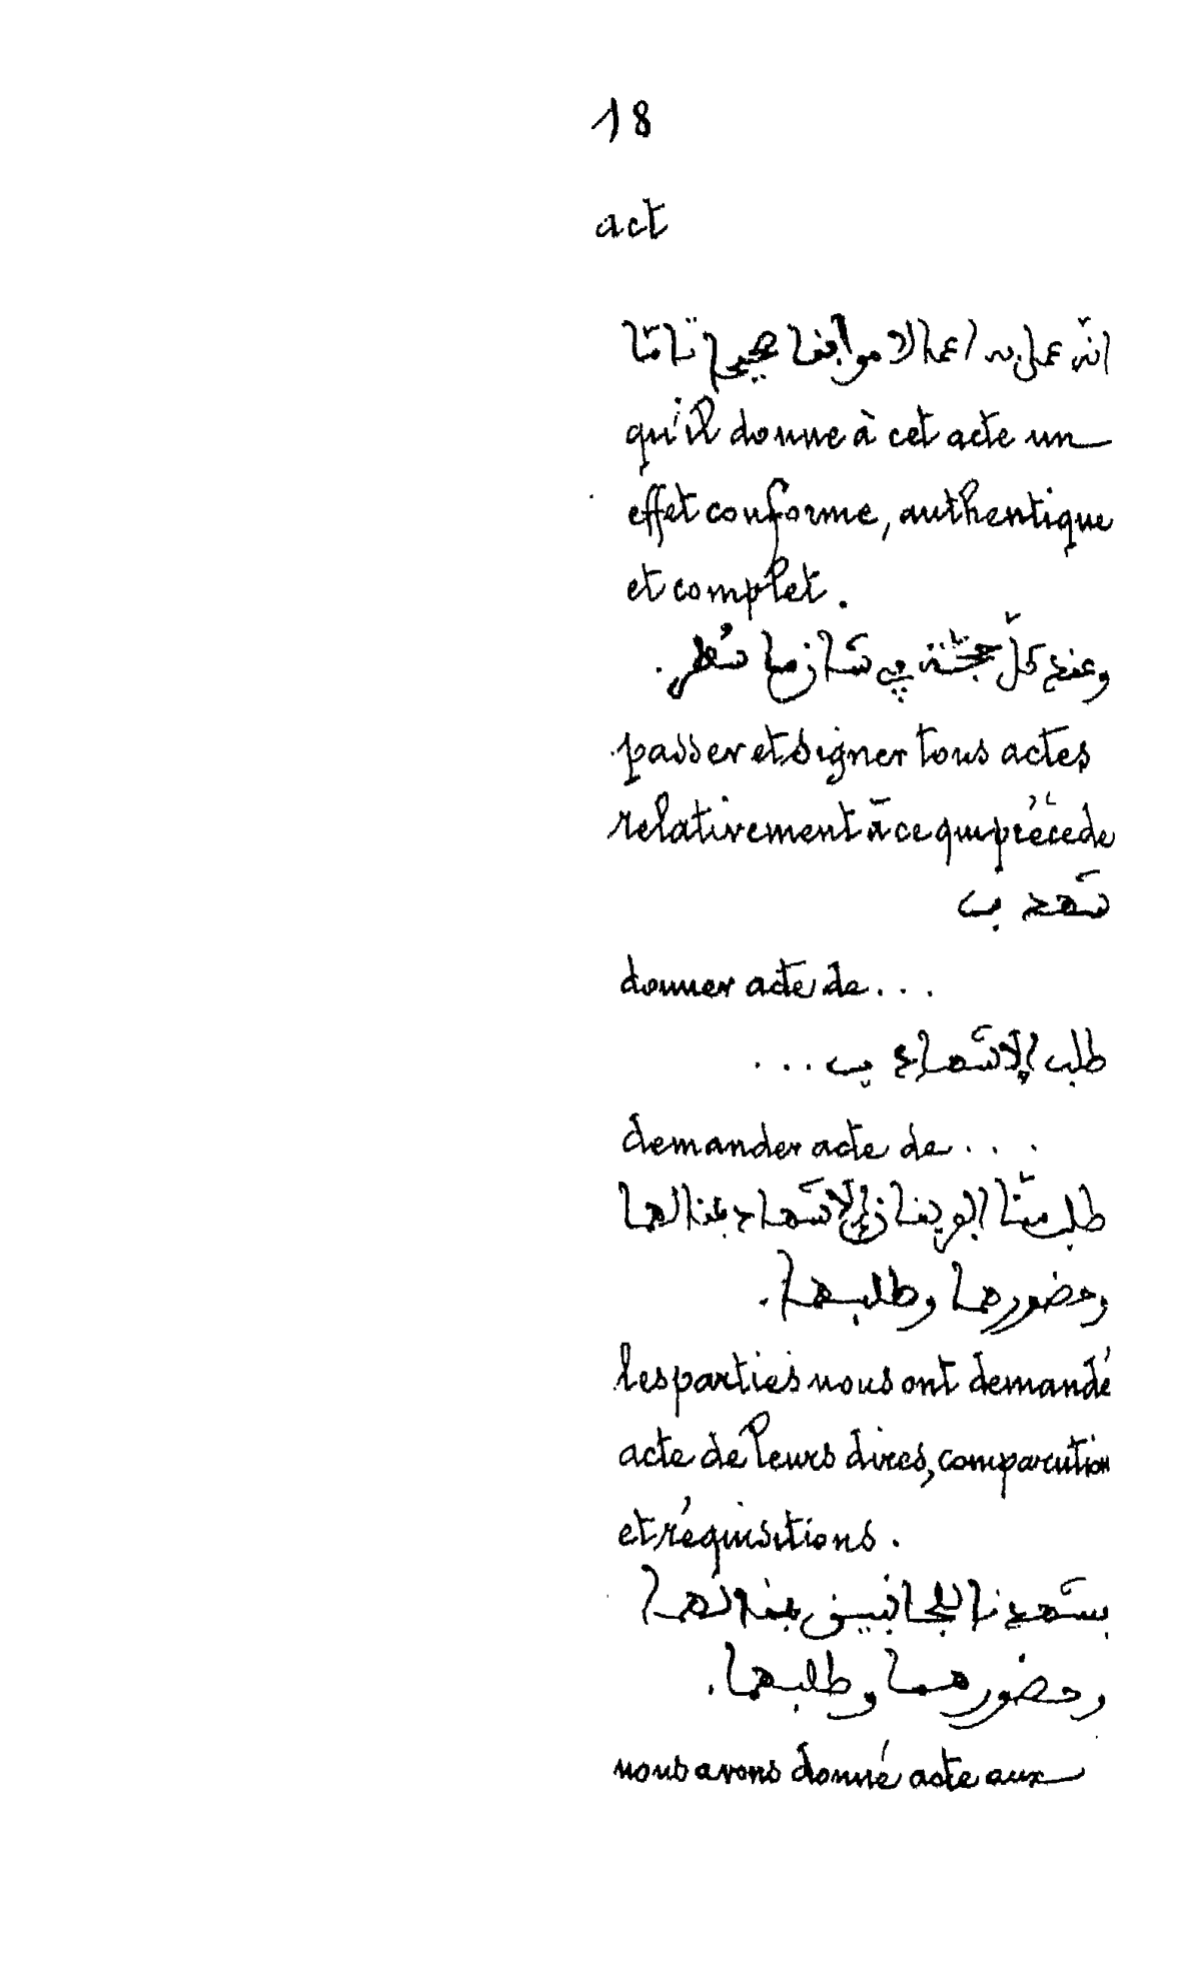 18
act
انّه عمل به اعمالا موافقا صحيحا تامّا
qu'il donne à cet acte un
effet conforme, authentique
et complet.
وعقد كلّ حجّة في شان ما سُطر.
passer et signer tous actes
relativement à ce qui précède
شهد ب
donner acte de...
طلب الاشهاد ب...
demander acte de...
طلب منّا الفريقان الاشهاد بمقالهما
وحضورهما وطلبهما.
les parties nous ont demandé
acte de leurs dires, comparution
et réquisitions.
فشهدنا للجانبين بمقالهما
وحضورهما وطلبهما.
nous avons donné acte aux